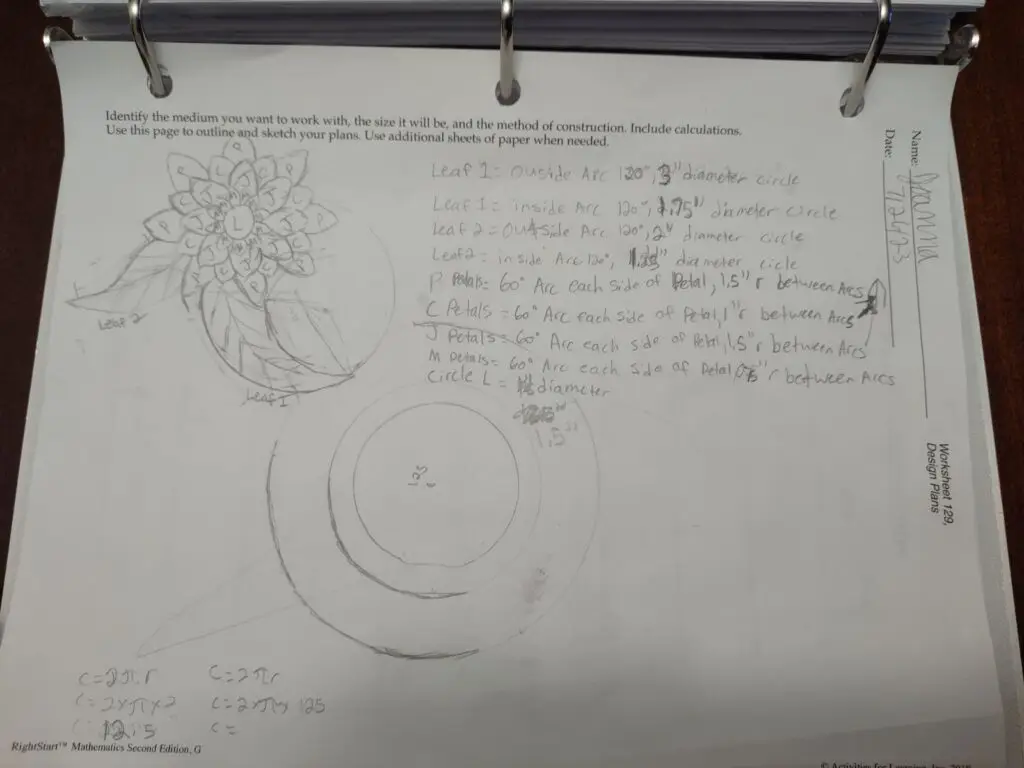 Identify the medium you want to work with, the size it will be, and the method of construction. Include calculations.
Use this page to outline and sketch your plans. Use additional sheets of paper when needed.
Name:
Date: 7/24/23
Worksheet 129,
Design Plans
Leaf 1 = Ouside Arc 120°, 3" diameter circle
Leaf 1 = inside Arc 120°, 1.75" diameter circle
Leaf 2 = Outside Arc 120°, 2" diameter circle
Leaf 2 = inside Arc 120°, diameter circle
P Petals = 60° Arc each side of Petal, 1.5" r between Arcs
C Petals = 60° Arc each side of Petal, 1" r between Arcs
J Petals = 60° Arc each side of Petal, 1.5" r between Arcs
M Petals = 60° Arc each side of Petal r between Arcs
Circle L = diameter
1.5"
Leaf 2
Leaf 1
C=2πr
C=2×π×2
C= 12.5
C=2πr
C=2×π× 125
C=
RightStart™ Mathematics Second Edition, G
© Activities for Learning, Inc.